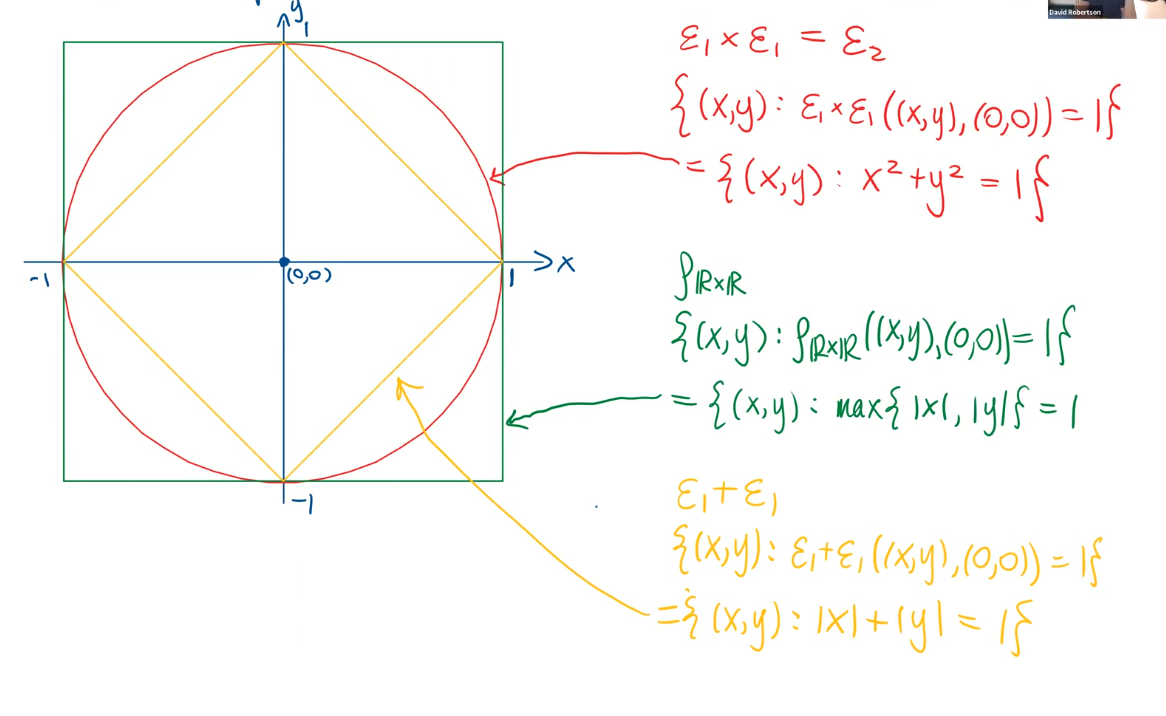 David Robertson
y
1
ε₁ × ε₁ = ε₂
{(x,y) : ε₁×ε₁((x,y),(0,0)) = 1}
= {(x,y) : x² + y² = 1}
-1
(0,0)
1
x
ρ_ℝ×ℝ
{(x,y) : ρ_ℝ×ℝ((x,y),(0,0)) = 1}
= {(x,y) : max{|x|, |y|} = 1
-1
ε₁ + ε₁
{(x,y) : ε₁+ε₁((x,y),(0,0)) = 1}
= {(x,y) : |x| + |y| = 1}